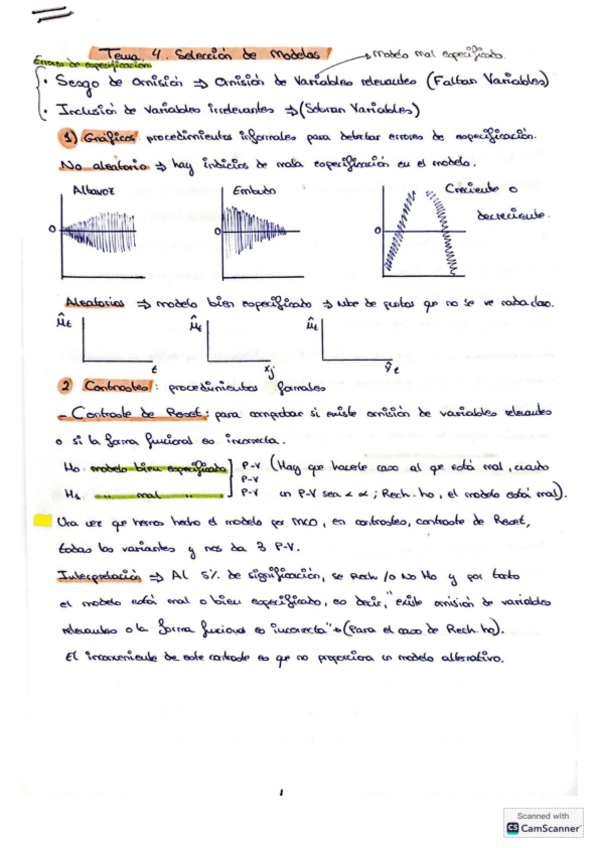 Tema 4. Selección de Modelos
→ Modelo mal especificado.
Errores de especificación
· Sesgo de Omisión ⇒ Omisión de Variables relevantes (Faltan Variables)
· Inclusión de Variables irrelevantes ⇒ (Sobran Variables)
1) Gráficos: procedimientos informales para detectar errores de especificación.
No aleatorio ⇒ hay indicios de mala especificación en el modelo.
Altavoz Embudo Creciente o
decreciente.
0 0 0
Aleatorios ⇒ modelo bien especificado ⇒ Nube de puntos que no se ve nada claro.
μ̂t μ̂t μ̂t
t xj ŷt
2 Contrastes: procedimientos formales
- Contraste de Reset: para comprobar si existe omisión de variables relevantes
o si la forma funcional es incorrecta.
Ho: modelo bien especificado P-V (Hay que hacerle caso al que está mal, cuando
P-V
H1: " mal " P-V un P-V sea < α; Rech. ho, el modelo está mal).
Una vez que hemos hecho el modelo por MCO, en contrastes, contraste de Reset,
todas las variantes y nos da 3 P-V.
Interpretación ⇒ Al 5% de significación, se Rech/o No Ho y por tanto
el modelo está mal o bien especificado, es decir, "existe omisión de variables
relevantes o la forma funcional es incorrecta" → (Para el caso de Rech. ho).
El inconveniente de este contraste es que no proporciona un modelo alternativo.
1
Scanned with
CS CamScanner